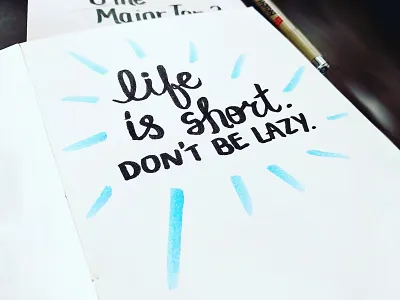 Major Top
life
is short.
DON'T BE LAZY.